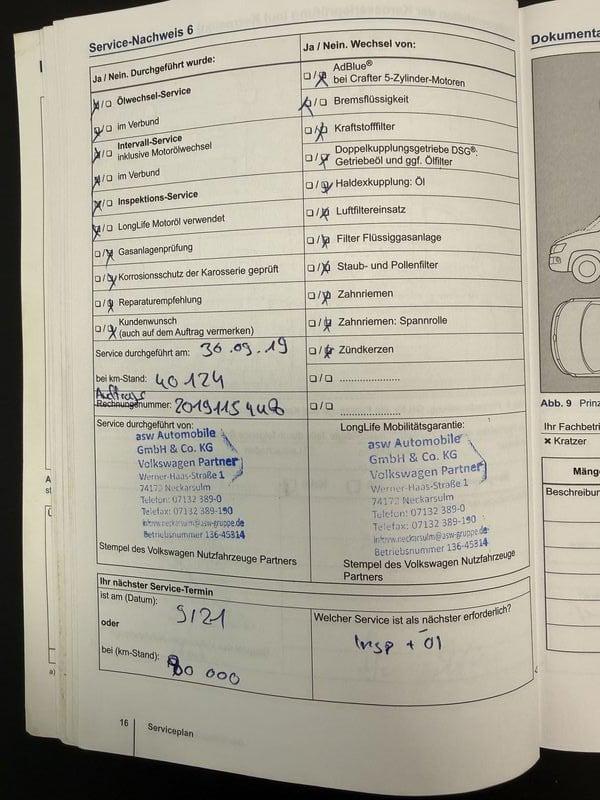 Service-Nachweis 6
Ja / Nein. Durchgeführt wurde:
Ölwechsel-Service
im Verbund
Intervall-Service
inklusive Motorölwechsel
im Verbund
Inspektions-Service
LongLife Motoröl verwendet
Gasanlagenprüfung
Korrosionsschutz der Karosserie geprüft
Reparaturempfehlung
Kundenwunsch
(auch auf dem Auftrag vermerken)
Service durchgeführt am: 30.09.19
bei km-Stand: 40124
Auftrags
Rechnungsnummer: 2019115448
Ja / Nein. Wechsel von:
AdBlue®
bei Crafter 5-Zylinder-Motoren
Bremsflüssigkeit
Kraftstofffilter
Doppelkupplungsgetriebe DSG®:
Getriebeöl und ggf. Ölfilter
Haldexkupplung: Öl
Luftfiltereinsatz
Filter Flüssiggasanlage
Staub- und Pollenfilter
Zahnriemen
Zahnriemen: Spannrolle
Zündkerzen
Service durchgeführt von:
asw Automobile
GmbH & Co. KG
Volkswagen Partner
Werner-Haas-Straße 1
74172 Neckarsulm
Telefon: 07132 389-0
Telefax: 07132 389-190
infovw.neckarsulm@asw-gruppe.de
Betriebsnummer 136-45314
Stempel des Volkswagen Nutzfahrzeuge Partners
LongLife Mobilitätsgarantie:
asw Automobile
GmbH & Co. KG
Volkswagen Partner
Werner-Haas-Straße 1
74172 Neckarsulm
Telefon: 07132 389-0
Telefax: 07132 389-190
infovw.neckarsulm@asw-gruppe.de
Betriebsnummer 136-45314
Stempel des Volkswagen Nutzfahrzeuge
Partners
Ihr nächster Service-Termin
ist am (Datum): 9/21
oder
bei (km-Stand): 80 000
Welcher Service ist als nächster erforderlich?
Insp + Öl
16 Serviceplan
Dokumenta
Abb. 9 Prinz
Ihr Fachbetri
× Kratzer
Mäng
Beschreibun